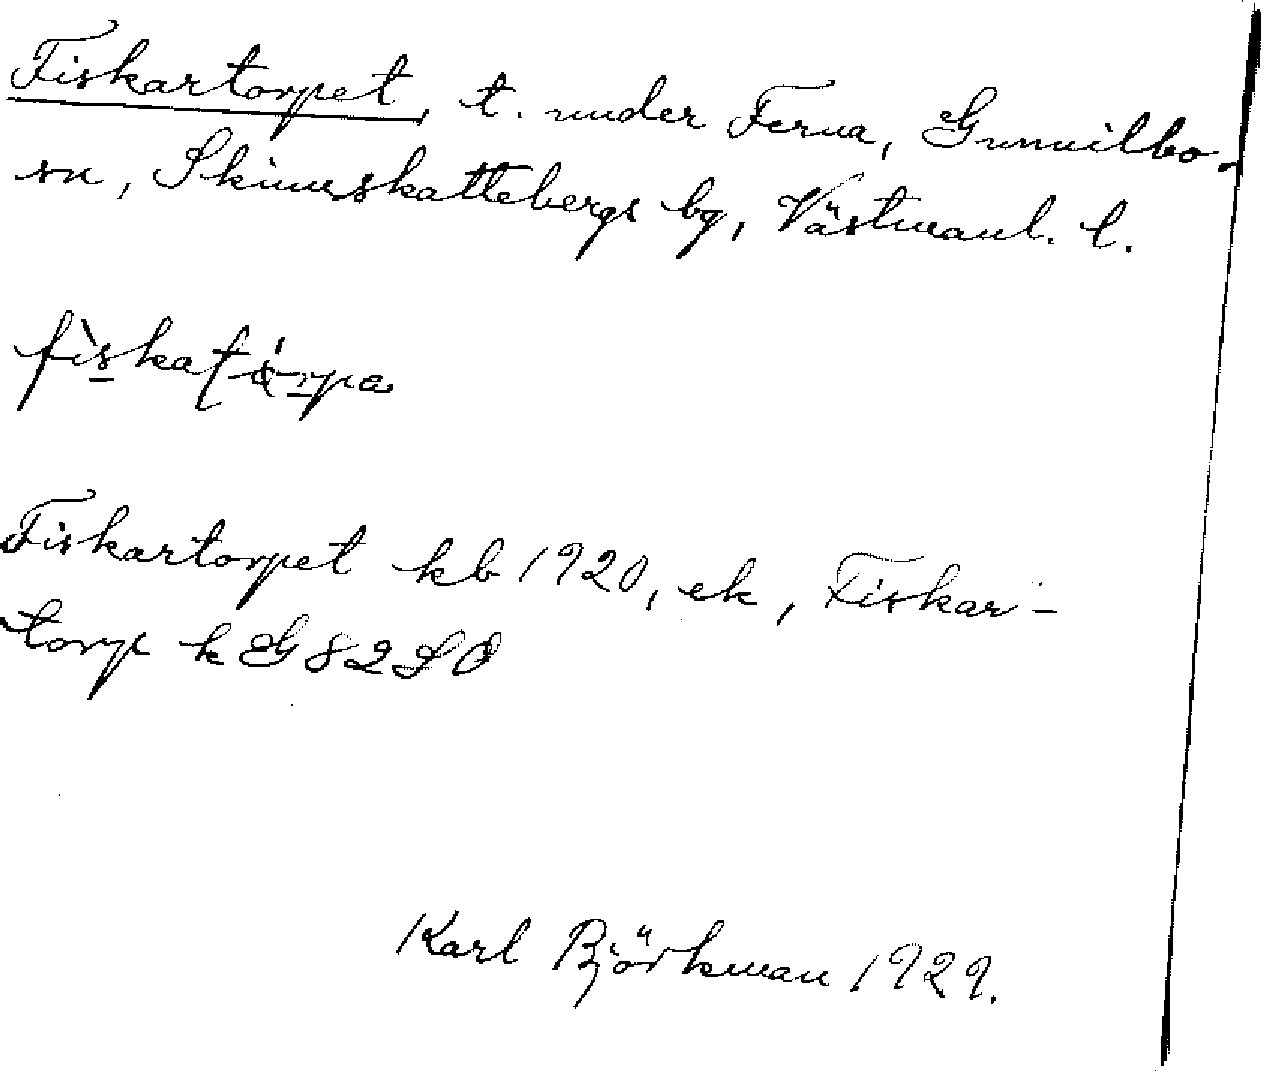 Fiskartorpet, t. under Ferna, Gunnilbo
sn, Skinnskattebergs bg, Västmanl. l.
Fiskartorpet kb 1920, ek, Fiskar-
torp k G 82 SO
Karl Björkman 1929.